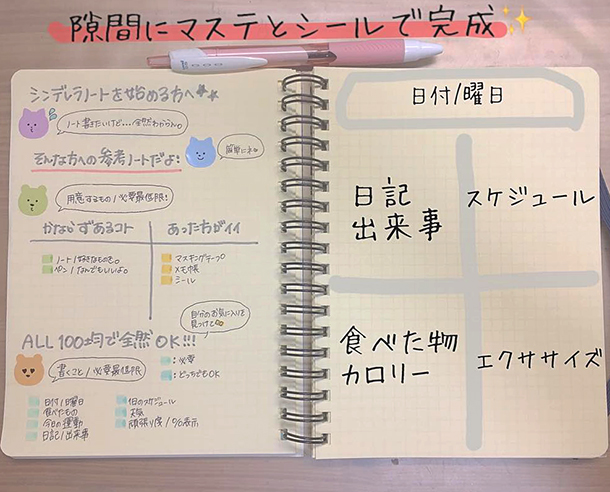 隙間にマステとシールで完成✨
シンデレラノートを始める方へ
ノート書きたいけど...全然わからん。
そんな方への参考ノートだよ!
簡単にネ
用意するもの/必要最低限!
かならずあるコト
あったカがイイ
ノート/好きなもの。
ペン/なんでもいいよ。
マスキングテープ
メモ帳
シール
自分のお気に入りを
見つけて
ALL 100均で全然OK!!!
書くこと/必要最低限
:必要
:どっちでもOK
日付/曜日
食べたもの
今日の運動
日記/出来事
1日のスケジュール
天気
頑張り度/%表示
日付/曜日
日記
出来事
スケジュール
食べた物
カロリー
エクササイズ